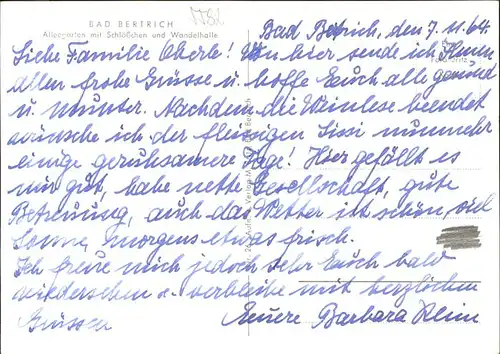 BAD BERTRICH
Allespretten mit Schlößchen und Wandelhalle
1782
Bad Bertrich, den 7.11.64.
Liebe Familie Oberle! Von hier sende ich Ihnen
allen frohe Grüsse u. hoffe Euch alle gesund
u. munter. Nachdem die Weinlese beendet
wünsche ich der fleissigen Sissi nunmehr
einige geruhsamere Tage! Hier gefällt es
mir gut, habe nette Gesellschaft, gute
Betreuung, auch das Wetter ist schön, viel
Sonne, morgens etwas frisch.
Ich freue mich jedoch sehr Euch bald
wiedersehen u. verbleibe mit herzlichen
Grüssen Euere Barbara Klein